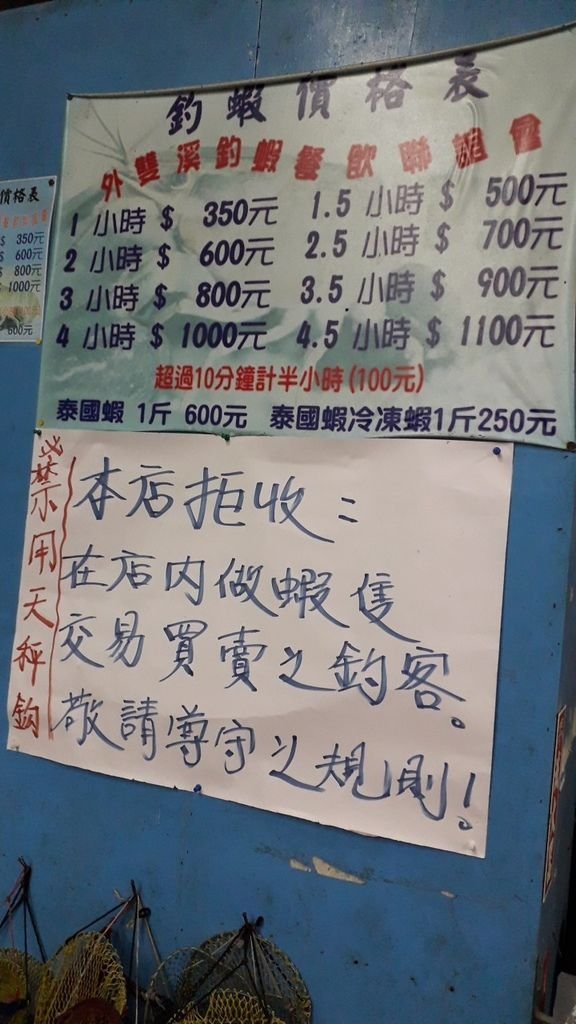 釣蝦價格表
外雙溪釣蝦餐飲聯誼會
1 小時 $ 350元 1.5 小時 $ 500元
2 小時 $ 600元 2.5 小時 $ 700元
3 小時 $ 800元 3.5 小時 $ 900元
4 小時 $ 1000元 4.5 小時 $ 1100元
超過10分鐘計半小時(100元)
泰國蝦 1斤 600元 泰國蝦冷凍蝦1斤250元
價格表
$ 350元
$ 600元
$ 800元
$ 1000元
600元
禁用天秤鉤
本店拒收:
在店內做蝦隻
交易買賣之釣客。
敬請遵守之規則!